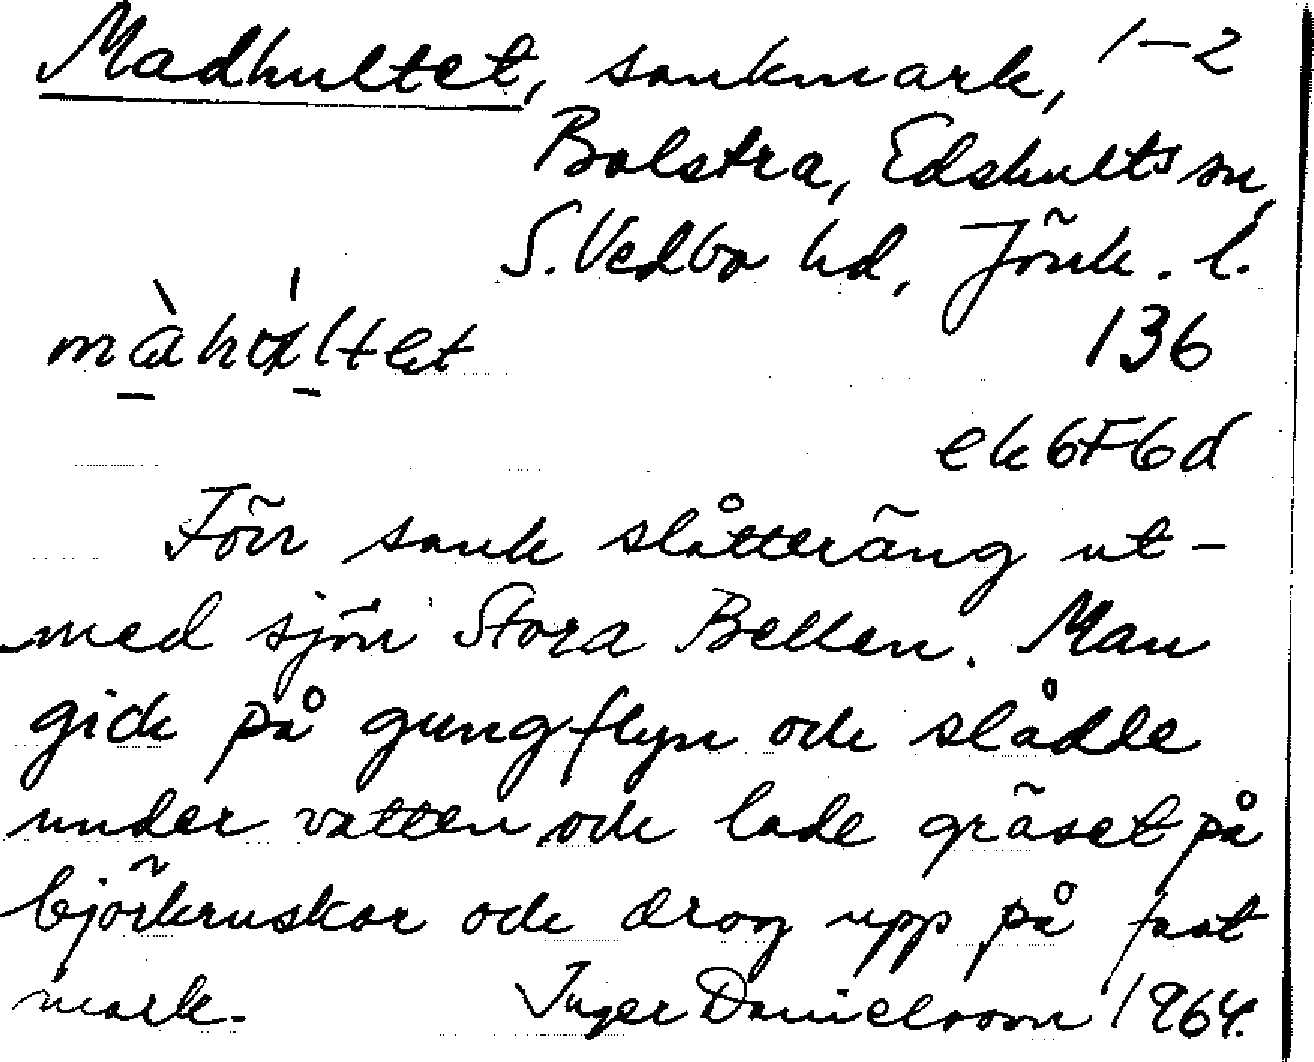 Madhultet, sankmark, 1-2
Bolstra, Edshults sn,
S. Vedbo hd, Jönk. l.
136
ek 6F6d
Förr sank slåtteräng ut-
med sjön Stora Bellen. Man
gick på gungflyn och slådde
under vatten och lade gräset på
björkruskor och drog upp på fast
mark. Inger Danielsson 1964.